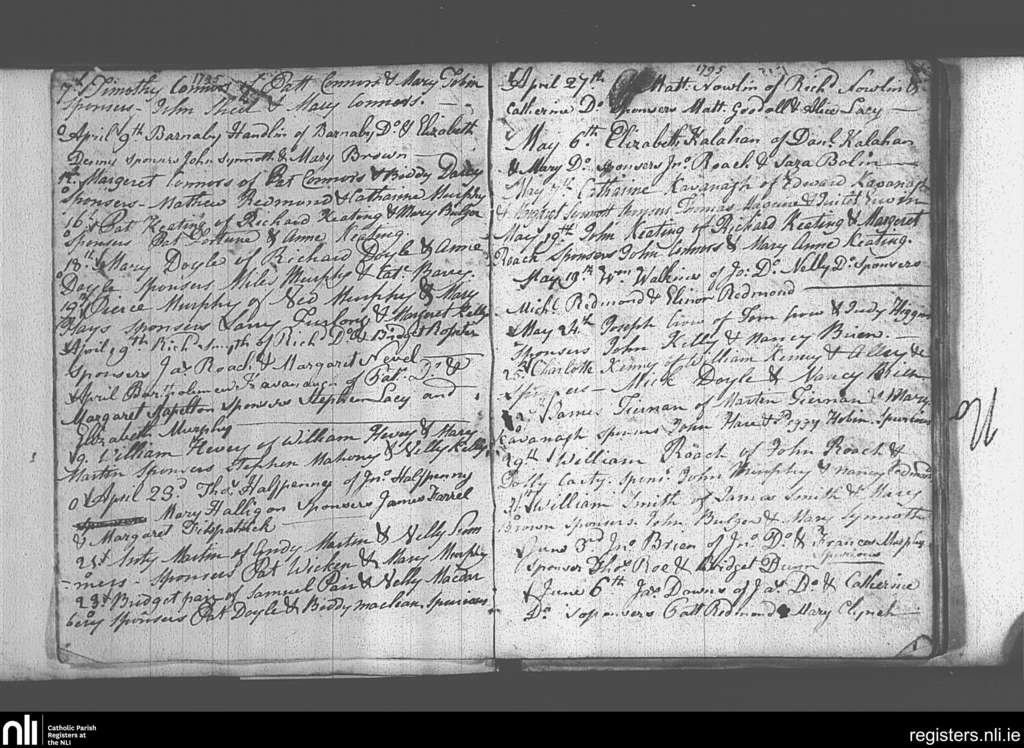 1795
7 Timothy Connors of Patt Connors & Mary Tobin
Sponsers John Shea & Mary Connors.
April 9th Barnaby Handlin of Barnaby Do & Elizabeth
Dennis sponsers John Synnott & Mary Brown
Margeret Connors of Pat Connors & Biddy Darcy
Sponsers Mathew Redmond & Catharine Murphy
16th Pat Keating of Richard Keating & Mary Bulger
Sponsers Pat Fortune & Anne Keating.
18th Mary Doyle of Richard Doyle & Anne
Doyle Sponsers Miles Murphy & Cat. Barry.
19th Pierce Murphy of Ned Murphy & Mary
Hays Sponsers Larry Furlong & Margret Kelly
April 19th Rich Smyth of Rich Do & Bridgt Rositer
Sponsers Jas Roach & Margard Nevel
April Bartholomew Kavanaugh of Pat. Do &
Margaret Stapelton Sponsers Stephen Lacy and
Elizabeth Murphy
19. William Hevey of William Hevey & Mary
Martin Sponsers Stephen Mahony & Nelly Kelly
April 23d Thos Halfpenny of Jno Halfpenny
& Mary Halligan Sponsers James Farrel
& Margaret Fitzpatrick
25th Martin of Andy Martin & Nelly
Sponsers Pat Wicken & Mary Murphy
23d Bridget Parr of Samuel Parr & Nelly
Sponsers Pat Doyle & Biddy maclean Spurious
1795
April 27th Matt Nowlin of Richd Nowlin &
Catherine Do Sponsers Matt Goodall & Alice Lacy
May 6th Elizabeth Kalahan of Danl Kalahan
& Mary Do Sponsers Jno Roach & Sara Bolin
May 7th Catharine Kavanagh of Edward Kavanagh
& Sinnott Sponsers
May 19th John Keating of Richard Keating & Margeret
Roach Sponsers John Connors & Mary Anne Keating.
May 13th Wm Walkins of Jo: Do Nelly Do Sponsers
Michl Redmond & Elinor Redmond
May 24th Joseph of Tom & Judy Higgins
Sponsers John Kelly & Nancy Brien.
25 Charlotte Kenny of William Kenny & Alley
Sponsers Mick Doyle & Nancy Brien
James Tiernan of Martin Tiernan & Mary
Kavanagh sponsers John Hare & Peggy Hobin. Spurious
29th William Roach of John Roach &
Polly Carty. Spons. John Murphy & Nancy
31st William Smith of James Smith & Mary
Brown Sponsers John Bulger & Mary Synnott
June 3rd Jno Brien of Jno Do & Frances Murphy
Sponser Thos Roe & Bridget Duran Spurious
June 6th Jas Downs of Jas Do & Catherine
Do Soponsers Patt Redmond & Mary Clynch
nli
Catholic Parish
Registers at
the NLI
registers.nli.ie